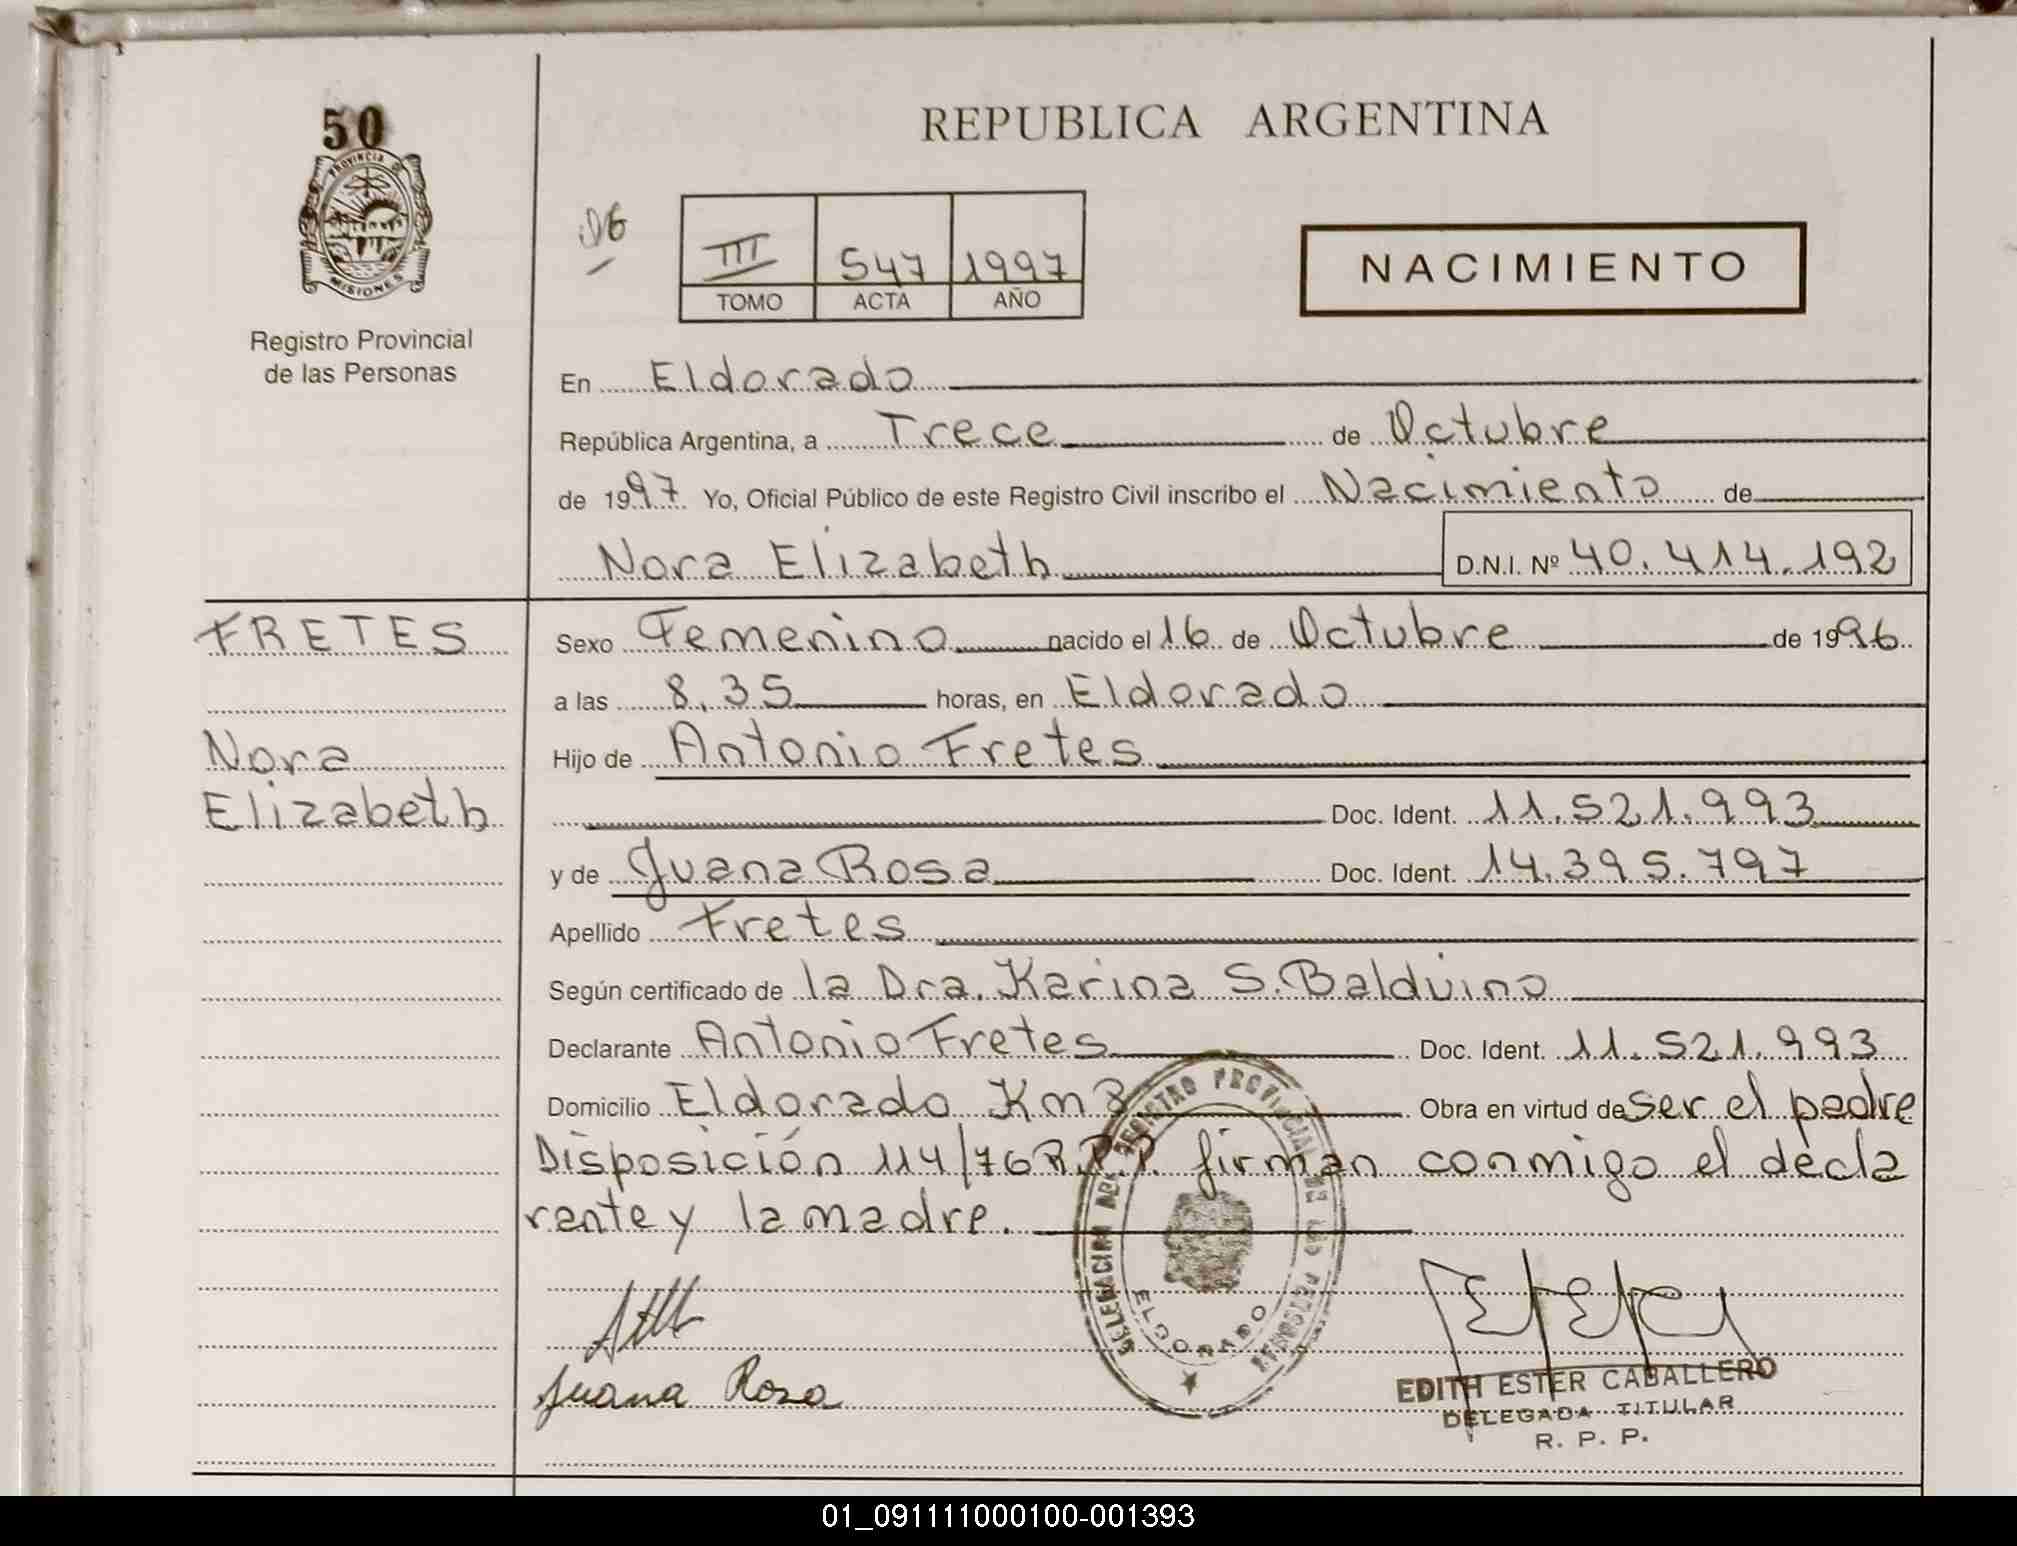 50
PROVINCIA DE
MISIONES
Registro Provincial
de las Personas
REPUBLICA ARGENTINA
III 547 1997
TOMO ACTA AÑO
NACIMIENTO
En Eldorado
República Argentina, a Trece de Octubre
de 1997 Yo, Oficial Público de este Registro Civil inscribo el Nacimiento de
Nora Elizabeth D.N.I. Nº 40.414.192
FRETES
Nora
Elizabeth
Sexo Femenino nacido el 16 de Octubre de 1996
a las 8,35 horas, en Eldorado
Hijo de Antonio Fretes
Doc. Ident. 11.521.993
y de Juana Rosa Doc. Ident. 14.395.797
Apellido Fretes
Según certificado de la Dra. Karina S. Balduino
Declarante Antonio Fretes Doc. Ident. 11.521.993
Domicilio Eldorado Km 3 Obra en virtud de ser el padre
Disposición 114/76 R.P.P. firman conmigo el decla
rante y la madre.
REGISTRO PROVINCIAL DE LAS PERSONAS
DELEGACION
ELDORADO
Juana Rosa
EDITH ESTER CABALLERO
DELEGADA TITULAR
R. P. P.
01_091111000100-001393